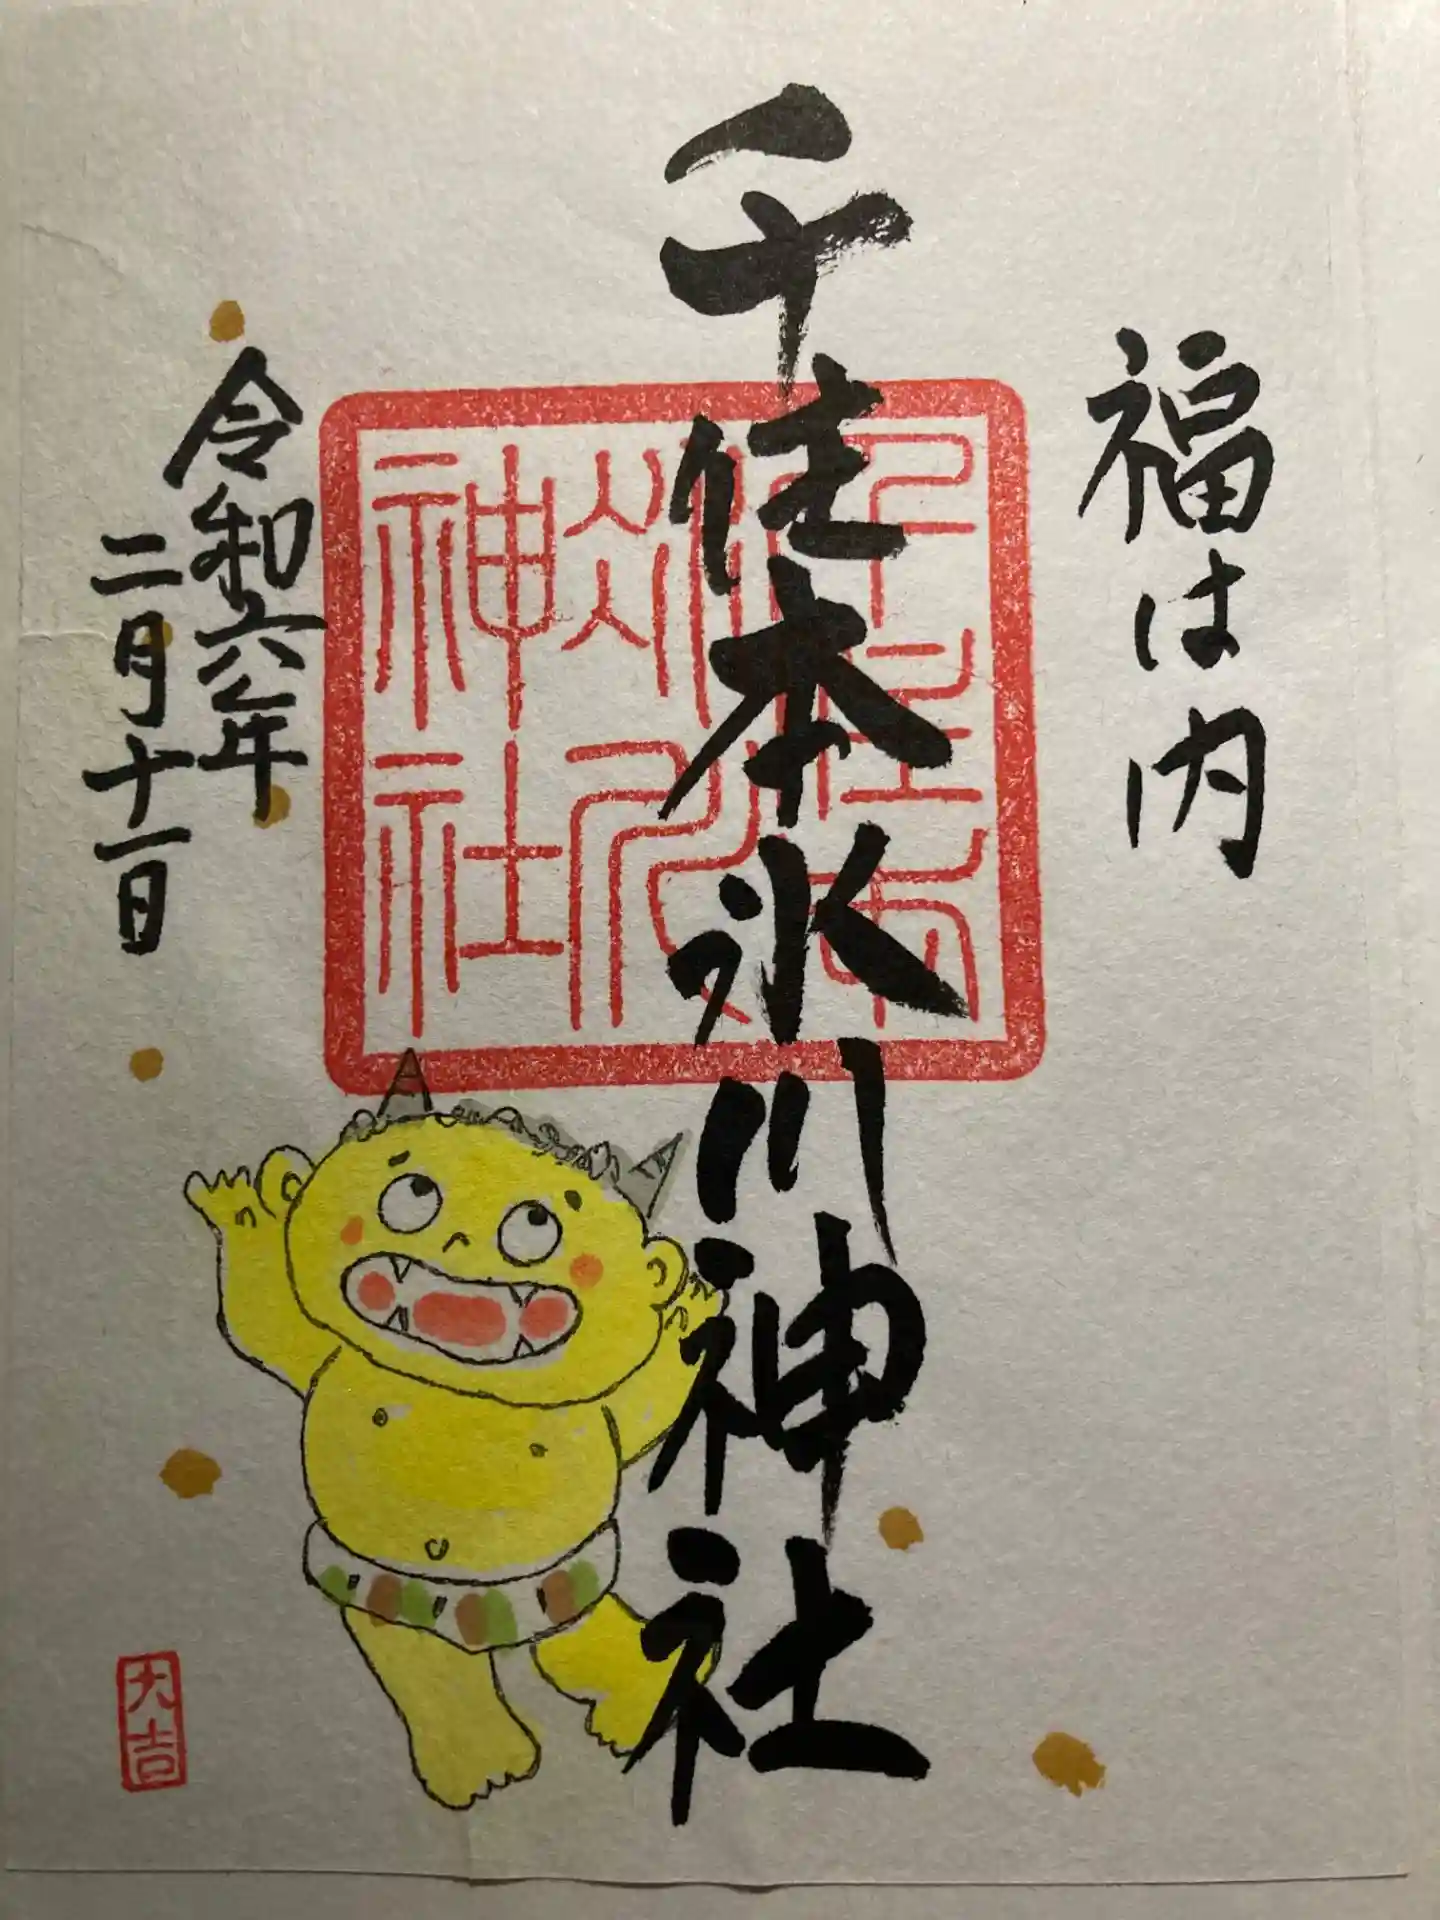 福は内
千住本氷川神社
令和六年
二月十一日
神社
大吉